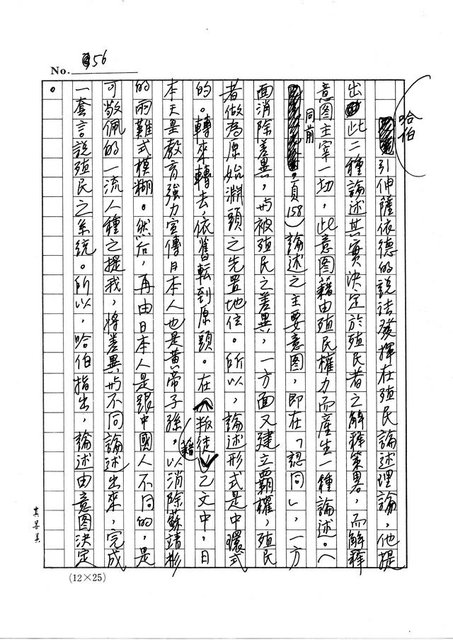 No. 56
哈伯
引伸薩依德的說法發揮在殖民論述理論,他提
出此二種論述其實決定於殖民者之解釋策畧,而解釋
意图主宰一切,此意图藉由殖民權力而產生一種論述。(
同前
頁158)論述之主要意图,即在「認同」,一方
面消除差異,與被殖民之差異,一方面又建立霸權,殖民
者做為原始淵頭之先置地位。所以,論述形式是中環式
的。轉來轉去,依舊転到原頭。在《叛徒》之文中,日
本天皇教育強力宣傳日本人也是黃帝子孫,藉以消除蘇靖彬
的兩難式模糊。然后,再由日本人是跟中國人不同的,是
可敬佩的一流人種之提我,將差異與不同論述出來,完成
一套言說殖民之系統。所以,哈伯指出,論述由意图決定
。
(12×25)